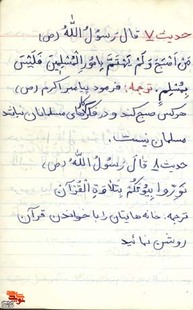 حدیث ۷ قال رسول الله (ص)
مَن اَصبَحَ وَلَم یَهتَمَّ بِاُمورِ المُسلِمینَ فَلَیسَ
بِمُسلِمٍ ترجمه: فرمود پیامبر اکرم (ص)
هر کس صبح کند و در فکر کارهای مسلمانان نباشد
مسلمان نیست.
حدیث ۸ قال رسول الله (ص)
نَوِّروا بُیوتَکُم بِتِلاوَةِ القُرآن
ترجمه: خانه هایتان را با خواندن قرآن
روشن نمائید